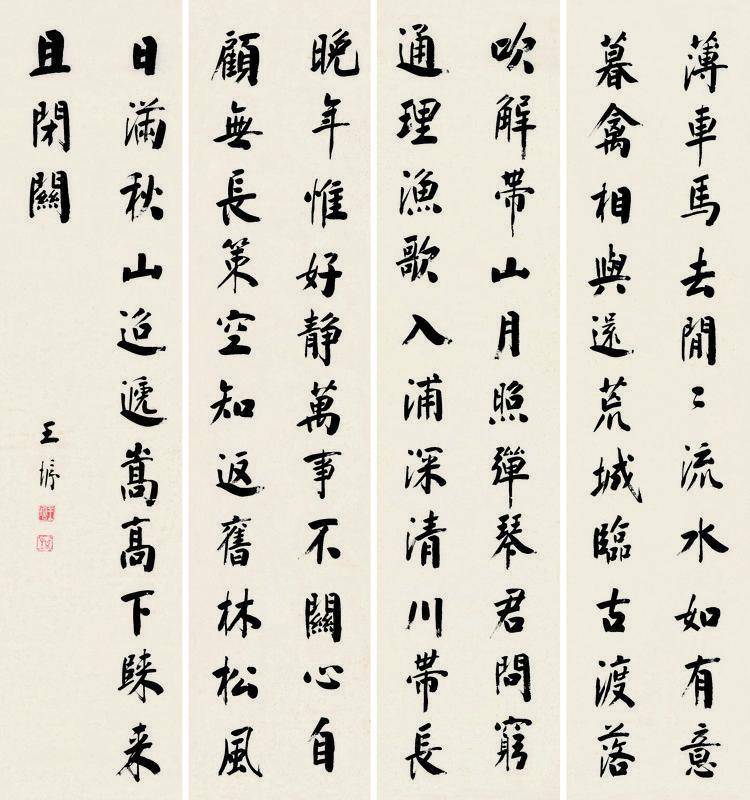 薄車馬去閒〻流水如有意
暮禽相與還荒城臨古渡落
吹解帶山月照彈琴君問窮
通理漁歌入浦深清川帶長
晚年惟好静萬事不關心自
顧無長策空知返舊林松風
日滿秋山迢遞嵩高下歸来
且閉關
王垿